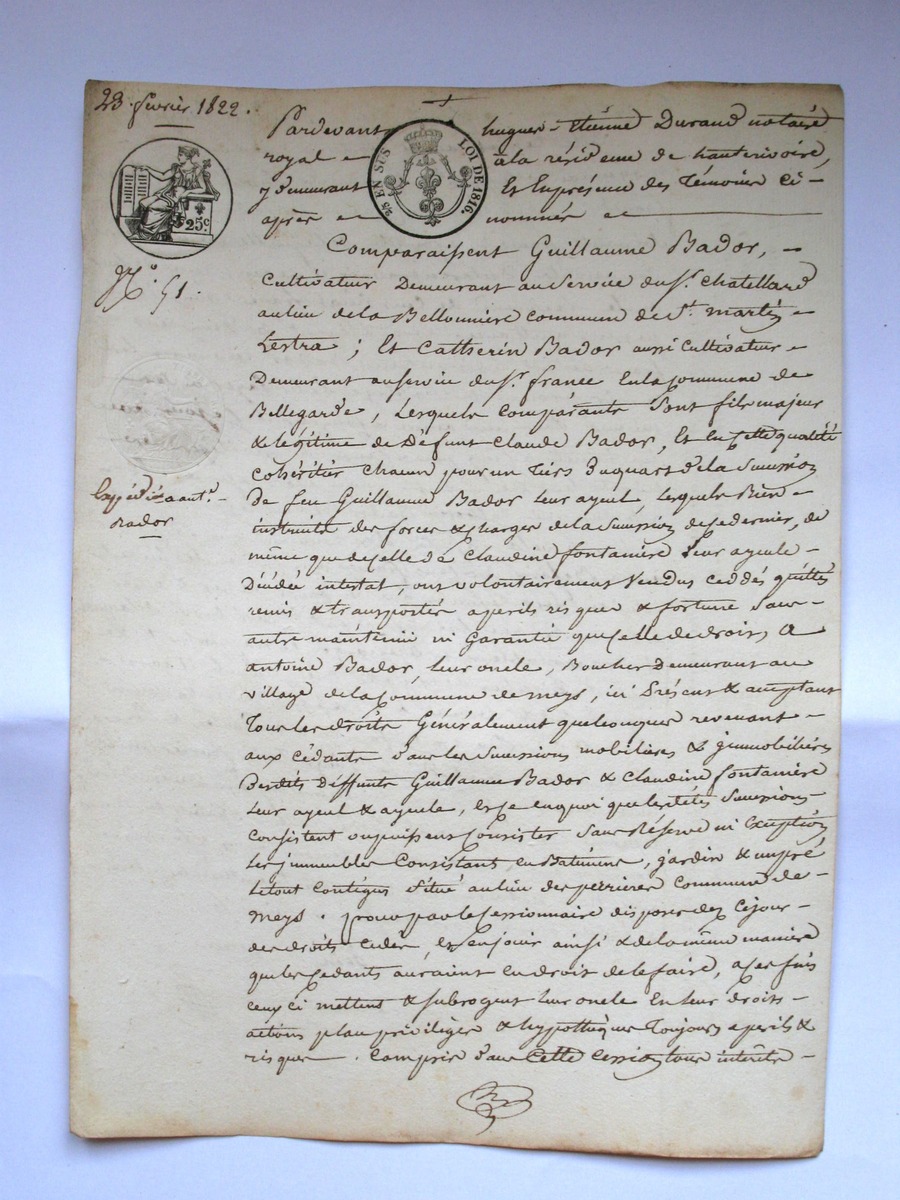 23 février 1822.
Pardevant hugues-étienne Durand notaire
royal à la résidence de hauterivoire,
y demeurant Et En présence des Témoins ci-
après nommés
25 EN SUS LOI DE 1816.
25c
Comparaissent Guillaume Bador,
N.° 51.
Cultivateur Demeurant au Service du Sr. Chatellard
au lieu de la Bellonnière commune de St. martin
Lestra; Et Catherin Bador aussi Cultivateur
Demeurant au service du Sr. france En la Commune de
Bellegarde, Lesquels Comparants Sont fils majeurs
& légitime de Défunt Claude Bador, Et En cette qualité
cohéritier chacun pour un Tiers du quart de la Succession
Expédié à ant.
Bador
De feu Guillaume Bador leur ayeul, Lesquels Bien
instruits des forces & charges de la Succession de ce dernier, de
même que de celle de Claudine fontanière Leur ayeule
Décédée intestat, ont volontairement Vendus ceddés quittés
remis & transportés a perils risque & fortune Sans
autre maintenüe ni Garantie que celle de droit, A
antoine Bador, leur oncle, Boucher Demeurant au
village de la Commune de meys, ici Présent & acceptant
Tous les droits Généralement quelconques revenant
aux cédants dans les Successions mobilières & jmmobilières
Desdits Deffunts Guillaume Bador & Claudine fontanière
Leur ayeul & ayeule, En ce en quoi que lesdites Successions
Consistent ou puissent Consister Sans Réserve ni Exception
Les jmmeubles Consistant en Batiment, jardin & un pré
Le tout Contigus Situé au lieu des perrieres commune de
meys. pour par le Cessionnaire disposer dez Cejour
des droits Cédés, et En jouir ainsi & de la même manière
que les Cedants auraient eu droit de le faire, a ces fins
ceux ci mettent & subrogent leur oncle En leur droits
actions plan privilèges & hypothèques Toujours a perils &
risques. Compris dans Cette Cession tous intérêts